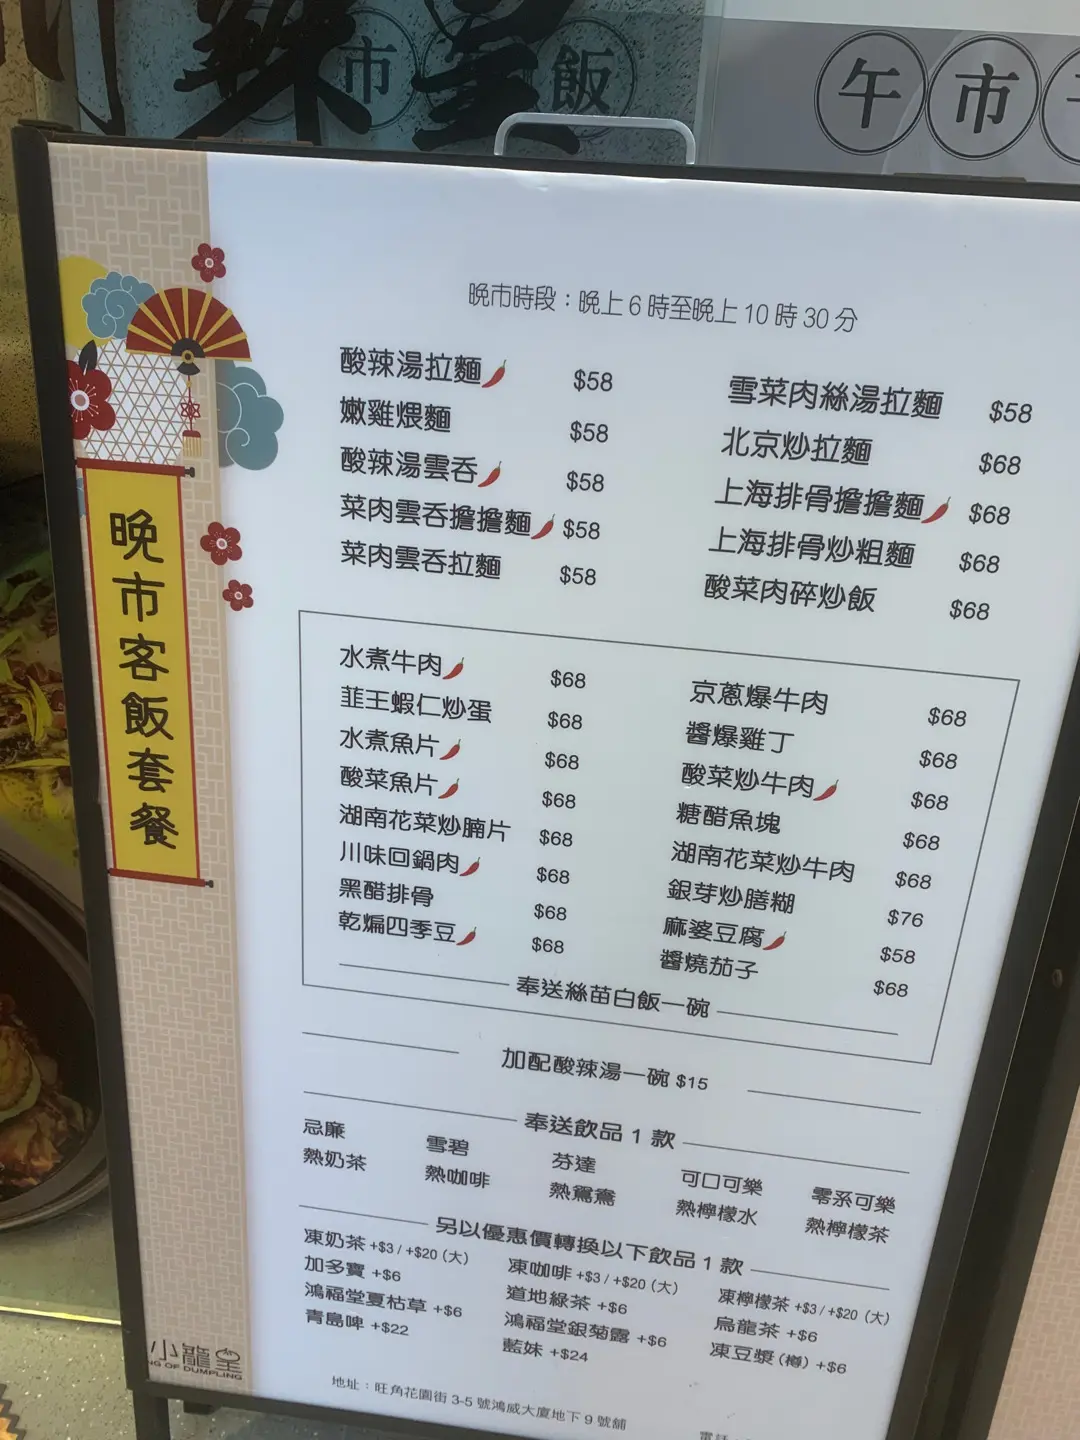 辣皇
市 飯
午市
晚市客飯套餐
晚市時段：晚上 6 時至晚上 10 時 30 分
酸辣湯拉麵 $58
嫩雞煨麵 $58
酸辣湯雲吞 $58
菜肉雲吞擔擔麵 $58
菜肉雲吞拉麵 $58
雪菜肉絲湯拉麵 $58
北京炒拉麵 $68
上海排骨擔擔麵 $68
上海排骨炒粗麵 $68
酸菜肉碎炒飯 $68
水煮牛肉 $68
韮王蝦仁炒蛋 $68
水煮魚片 $68
酸菜魚片 $68
湖南花菜炒腩片 $68
川味回鍋肉 $68
黑醋排骨 $68
乾煸四季豆 $68
京蔥爆牛肉 $68
醬爆雞丁 $68
酸菜炒牛肉 $68
糖醋魚塊 $68
湖南花菜炒牛肉 $68
銀芽炒膳糊 $76
麻婆豆腐 $58
醬燒茄子 $68
奉送絲苗白飯一碗
加配酸辣湯一碗 $15
奉送飲品 1 款
忌廉 雪碧 芬達 可口可樂 零系可樂
熱奶茶 熱咖啡 熱鴛鴦 熱檸檬水 熱檸檬茶
另以優惠價轉換以下飲品 1 款
凍奶茶 +$3 / +$20（大） 凍咖啡 +$3 / +$20（大） 凍檸檬茶 +$3 / +$20（大）
加多寶 +$6 道地綠茶 +$6 烏龍茶 +$6
鴻福堂夏枯草 +$6 鴻福堂銀菊露 +$6 凍豆漿（樽）+$6
青島啤 +$22 藍妹 +$24
小龍皇
NG OF DUMPLING
地址：旺角花園街 3-5 號鴻威大廈地下 9 號舖
電話